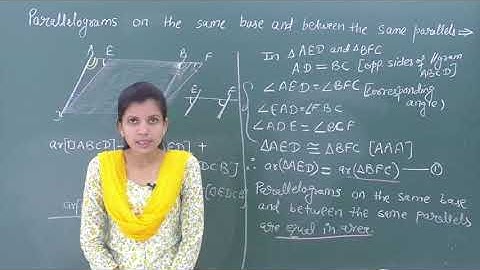 Parallelograms on the same base and between the same parallels ⇒
A E B F
E F
ar[□ABCD]
ar[
In △AED and △BFC
AD = BC [opp. sides of //gram ABCD]
∠AED = ∠BFC [corresponding angle]
∠EAD = ∠FBC
∠ADE = ∠BCF
△AED ≅ △BFC [AAA]
∴ ar(△AED) = ar(△BFC) — ①
Parallelograms on the same base
and between the same parallels
are equal in area.